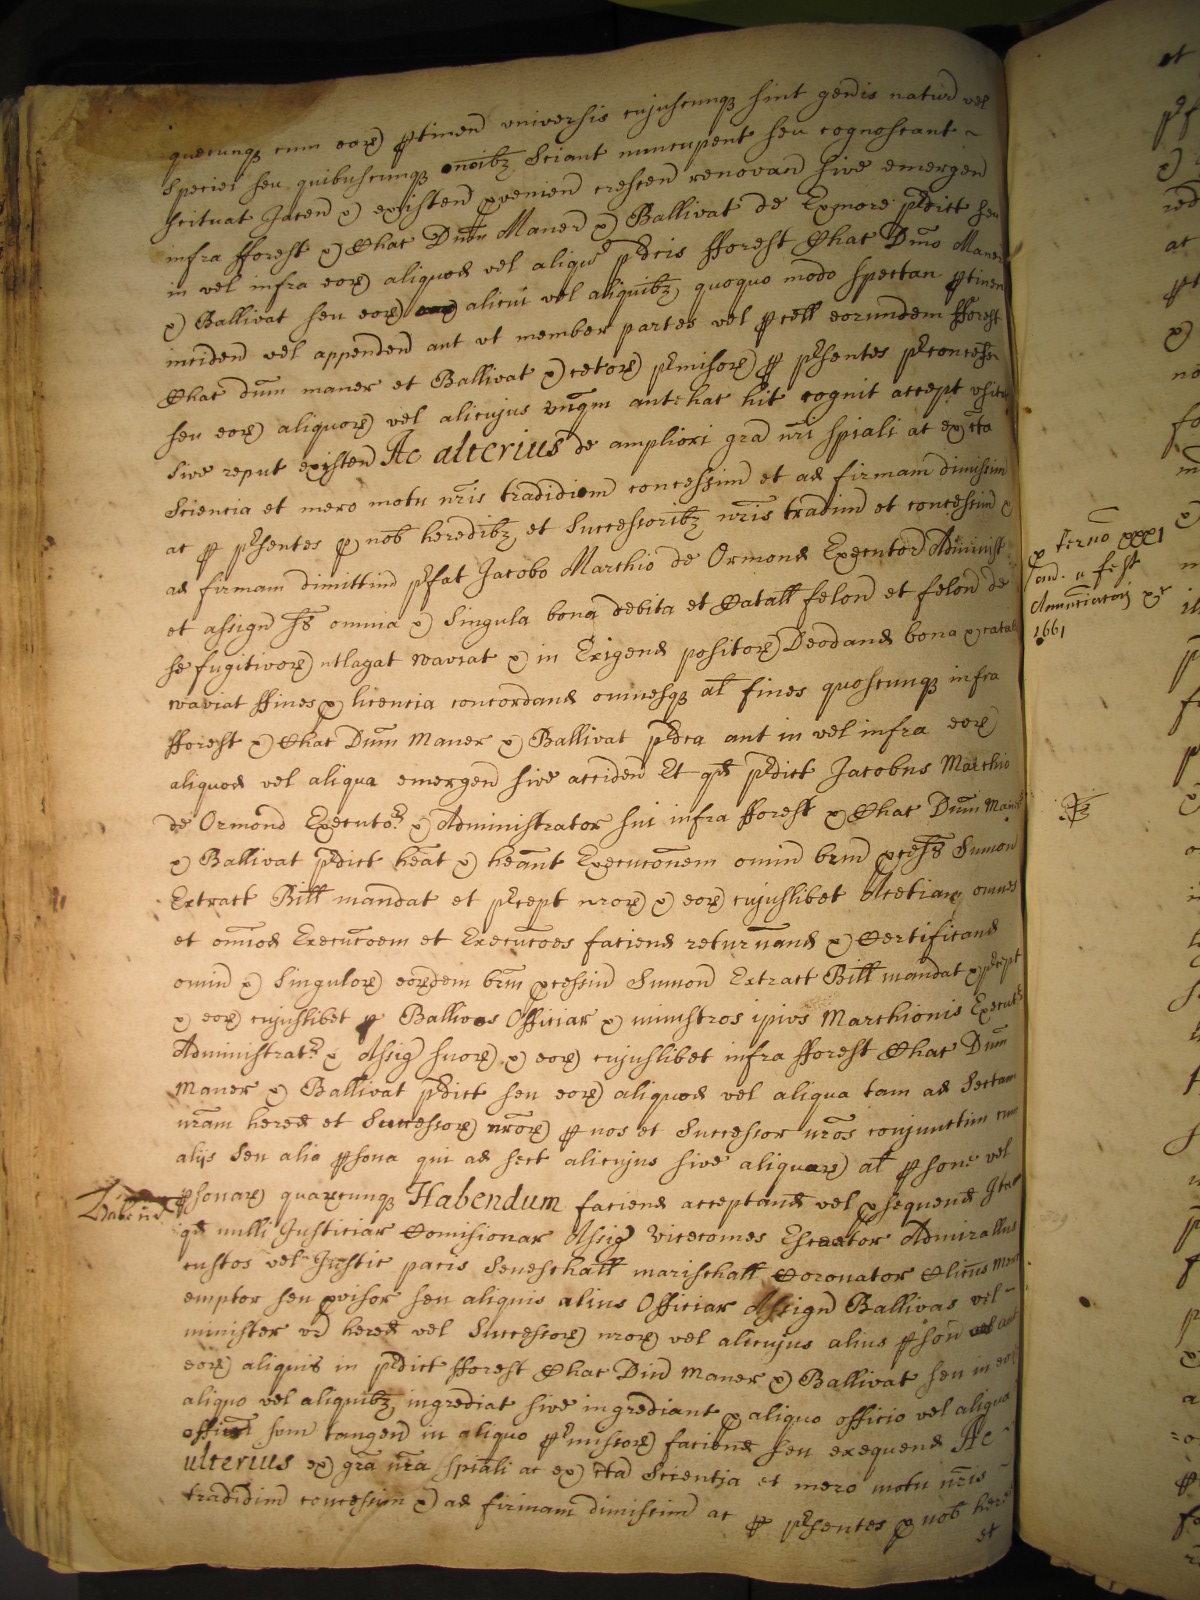 quecunq; cum eor ptinen universis cujuscunq; sint genis natur vel
Speciei seu quibuscunq; noibz Sciant nuncupent seu cognoscant
scituat Jacen & existen pvenien crescen renovan sive emergen
infra fforest & Chac Dum Maner & Ballivat de Exmore pdict seu
in vel infra eor aliquod vel aliqu pdcis fforest Chac Dno Maner
& Ballivat seu eor alicui vel aliquibz quoquo modo spectan ptinen
inciden vel appenden aut vt member partes vel pcell eorundem fforest
Chac dum maner et Ballivat & cetor pmisor p psentes pconcess
seu eor aliquor vel alicujus unqm antehac hit cognit accept usitat
sive reput existen Ac ulterius de ampliori gra nri spiali ac ex cta
Sciencia et mero motu nris tradidiem concessim et ad firmam dimissim
ac p psentes p nob heredibz et Successoribz nris tradim et concessim &
ad firmam dimittim pfat Jacobo Marchio de Ormond Executor Administ
et assign omnia & Singula bona debita et Catall felon et felon de
se fugitivor utlagat waviat & in Exigend positor Deodand bona & catal
waviat ffines p licencia concordand omnesq; al fines quoscunq; infra
fforest & Chac Dum Maner & Ballivat pdca aut in vel infra eor
aliquod vel aliqua emergen sive acciden Et qd pdict Jacobus Marchio
de Ormond Executor & Administrator sui infra fforest & Chac Dum Maner
& Ballivat pdict heat & heant Execuconem omin brm pcess Sumon
Extract Bill mandat et pcept nror & eor cujuslibet Acetiam omnes
et omod Execucoem et Execucoes faciend returnand & Certificand
omin & Singulor eordem brm pcessim Sumon Extract Bill mandat & pcept
& eor cujuslibet p Ballivos Officiar & ministros ipius Marchionis Execut
Administrat & Assig suor & eor cujuslibet infra fforest Chac Dum
Maner & Ballivat pdict seu eor aliquod vel aliqua tam ad Sectam
nram hered et Successor nror p nos et Successor nros conjunctim cum
alijs Seu alia psona qui ad sect alicujus sive aliquar al pson vel
psonar quarcunq; Habendum faciend acceptand vel psequend Item
qd nulli Justiciar Comisionar Assig Vicecomes Escaetor Admirallus
custos vel Justic pacis Seneschall marischall Coronator Clicus mer
emptor seu pvisor seu aliquis alius Officiar Assign Ballivas vel
minister hered vel Successor nror vel alicujus alius pson aut
eor aliquis in pdict fforest Chac Dim Maner & Ballivat seu in eor
aliquo vel aliquibz ingrediat sive ingrediant p aliquo officio vel aliqua
offici som tangen in aliquo pmissor faciend seu exequend Ac
ulterius ex gra nra spiali ac ex cta Scientia et mero motu nris
tradidim concessim & ad firmam dimissim ac p psentes p nob here
et
Habend
p termo xxxi
Annunciacoij
1661